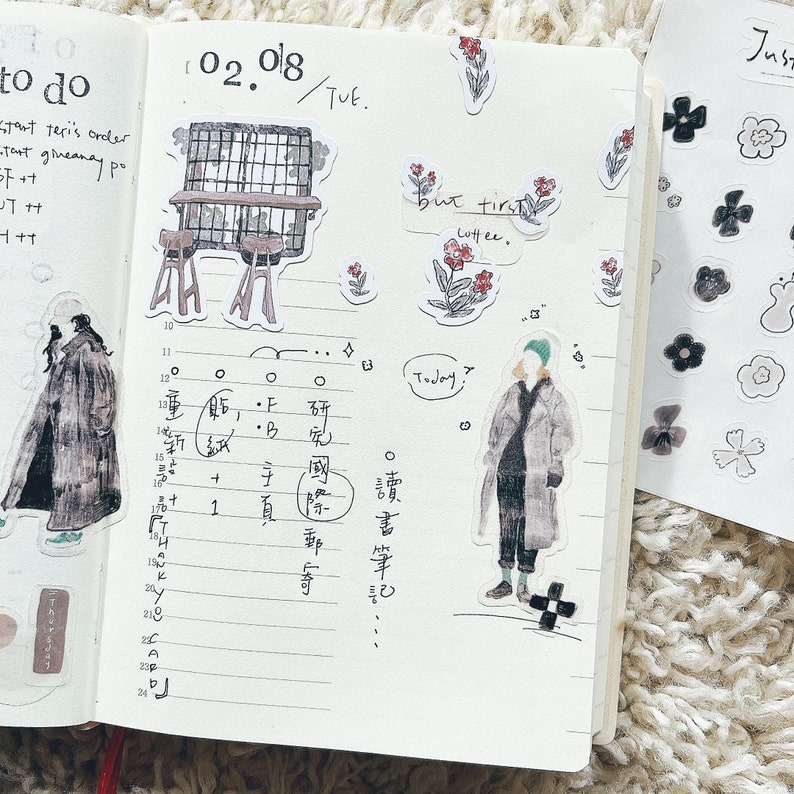 to do
teri's order
giveaway po
++
++
++
Thursday
02.08
/Tue.
but first,
coffee.
Today?
10
11
12
13
14
15
16
17
18
19
20
21
22
23
24
研究國際郵寄
・F
・B
主頁
貼紙+1
重新設計
「THANK YOU CARD」
讀書筆記...
Just